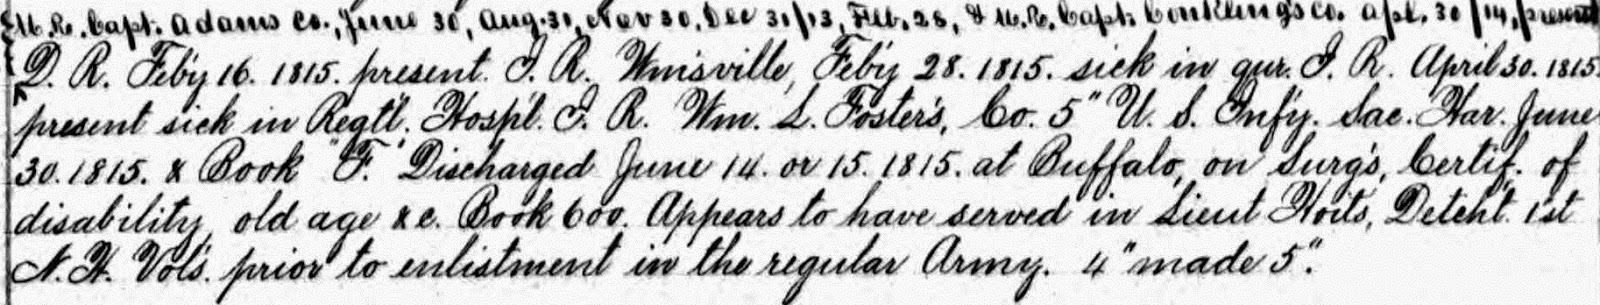 M. R. Capt. Adams Co., June 30, Aug. 31, Nov 30, Dec 31/13, Feb. 28, & M. R. Capt. Conkling's Co. Apl. 30/14, present
D. R. Feb'y 16. 1815. present. I. R. Wmsville, Feb'y 28. 1815. sick in qur. I. R. April 30. 1815.
present sick in Regt'l. Hosp'l. I. R. Wm. L. Foster's, Co. 5" U. S. Inf'y. Sac. Har. June
30. 1815. & Book "F." Discharged June 14. or 15. 1815. at Buffalo, on Surg's, Certif. of
disability, old age &c. Book 600. Appears to have served in Lieut Hoits, Detcht. 1st
N. H. Vols. prior to enlistment in the regular Army. 4" made 5".